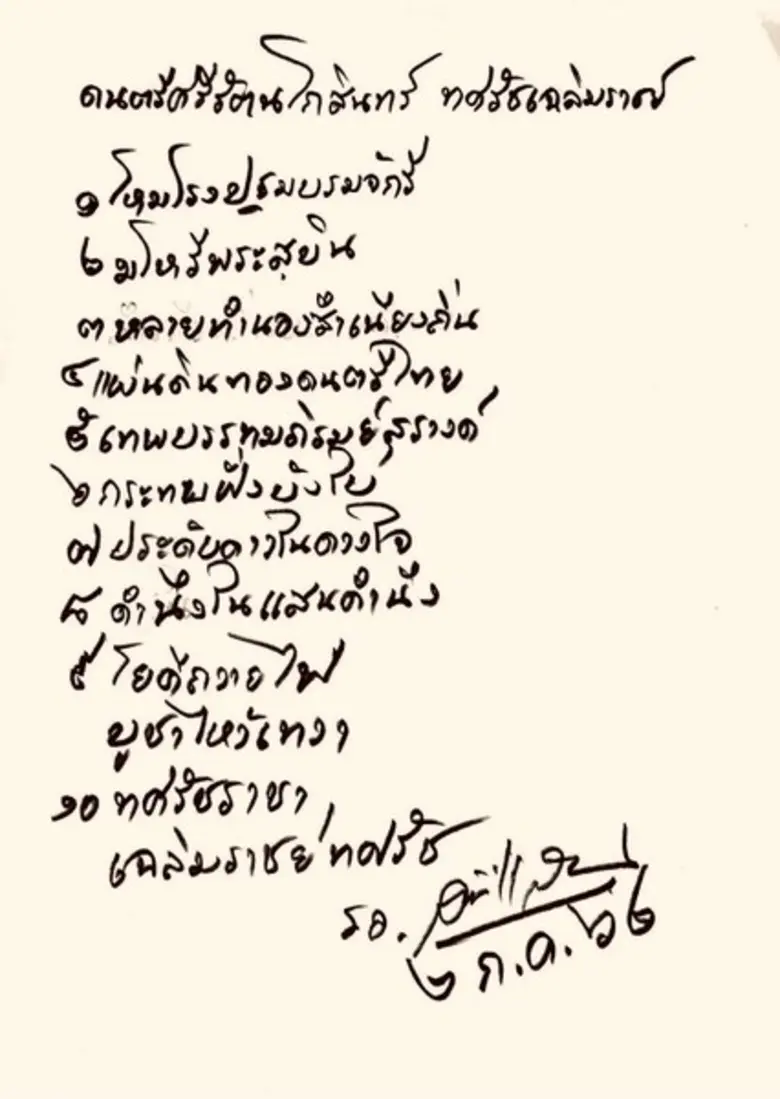 ดนตรีศรีรัตนโกสินทร์ ทศรัชเฉลิมราชย์
๑ โหมโรงปฐมบรมจักรี
๒ มโหรีพระสุบิน
๓ หลายทำนองสำเนียงถิ่น
๔ แผ่นดินทองดนตรีไทย
๕ เทพบรรทมภิรมย์สุรางค์
๖ กระทบฝั่งบังใบ
๗ ประดับดาวในดวงใจ
๘ คำนึงในแสนคำนึง
๙ โยคีถวายไฟ
บูชาไหว้เทวา
๑๐ ทศรัชราชา
เฉลิมราชย์ทศรัช
รอ.
๒ ก.ค. ๖๒